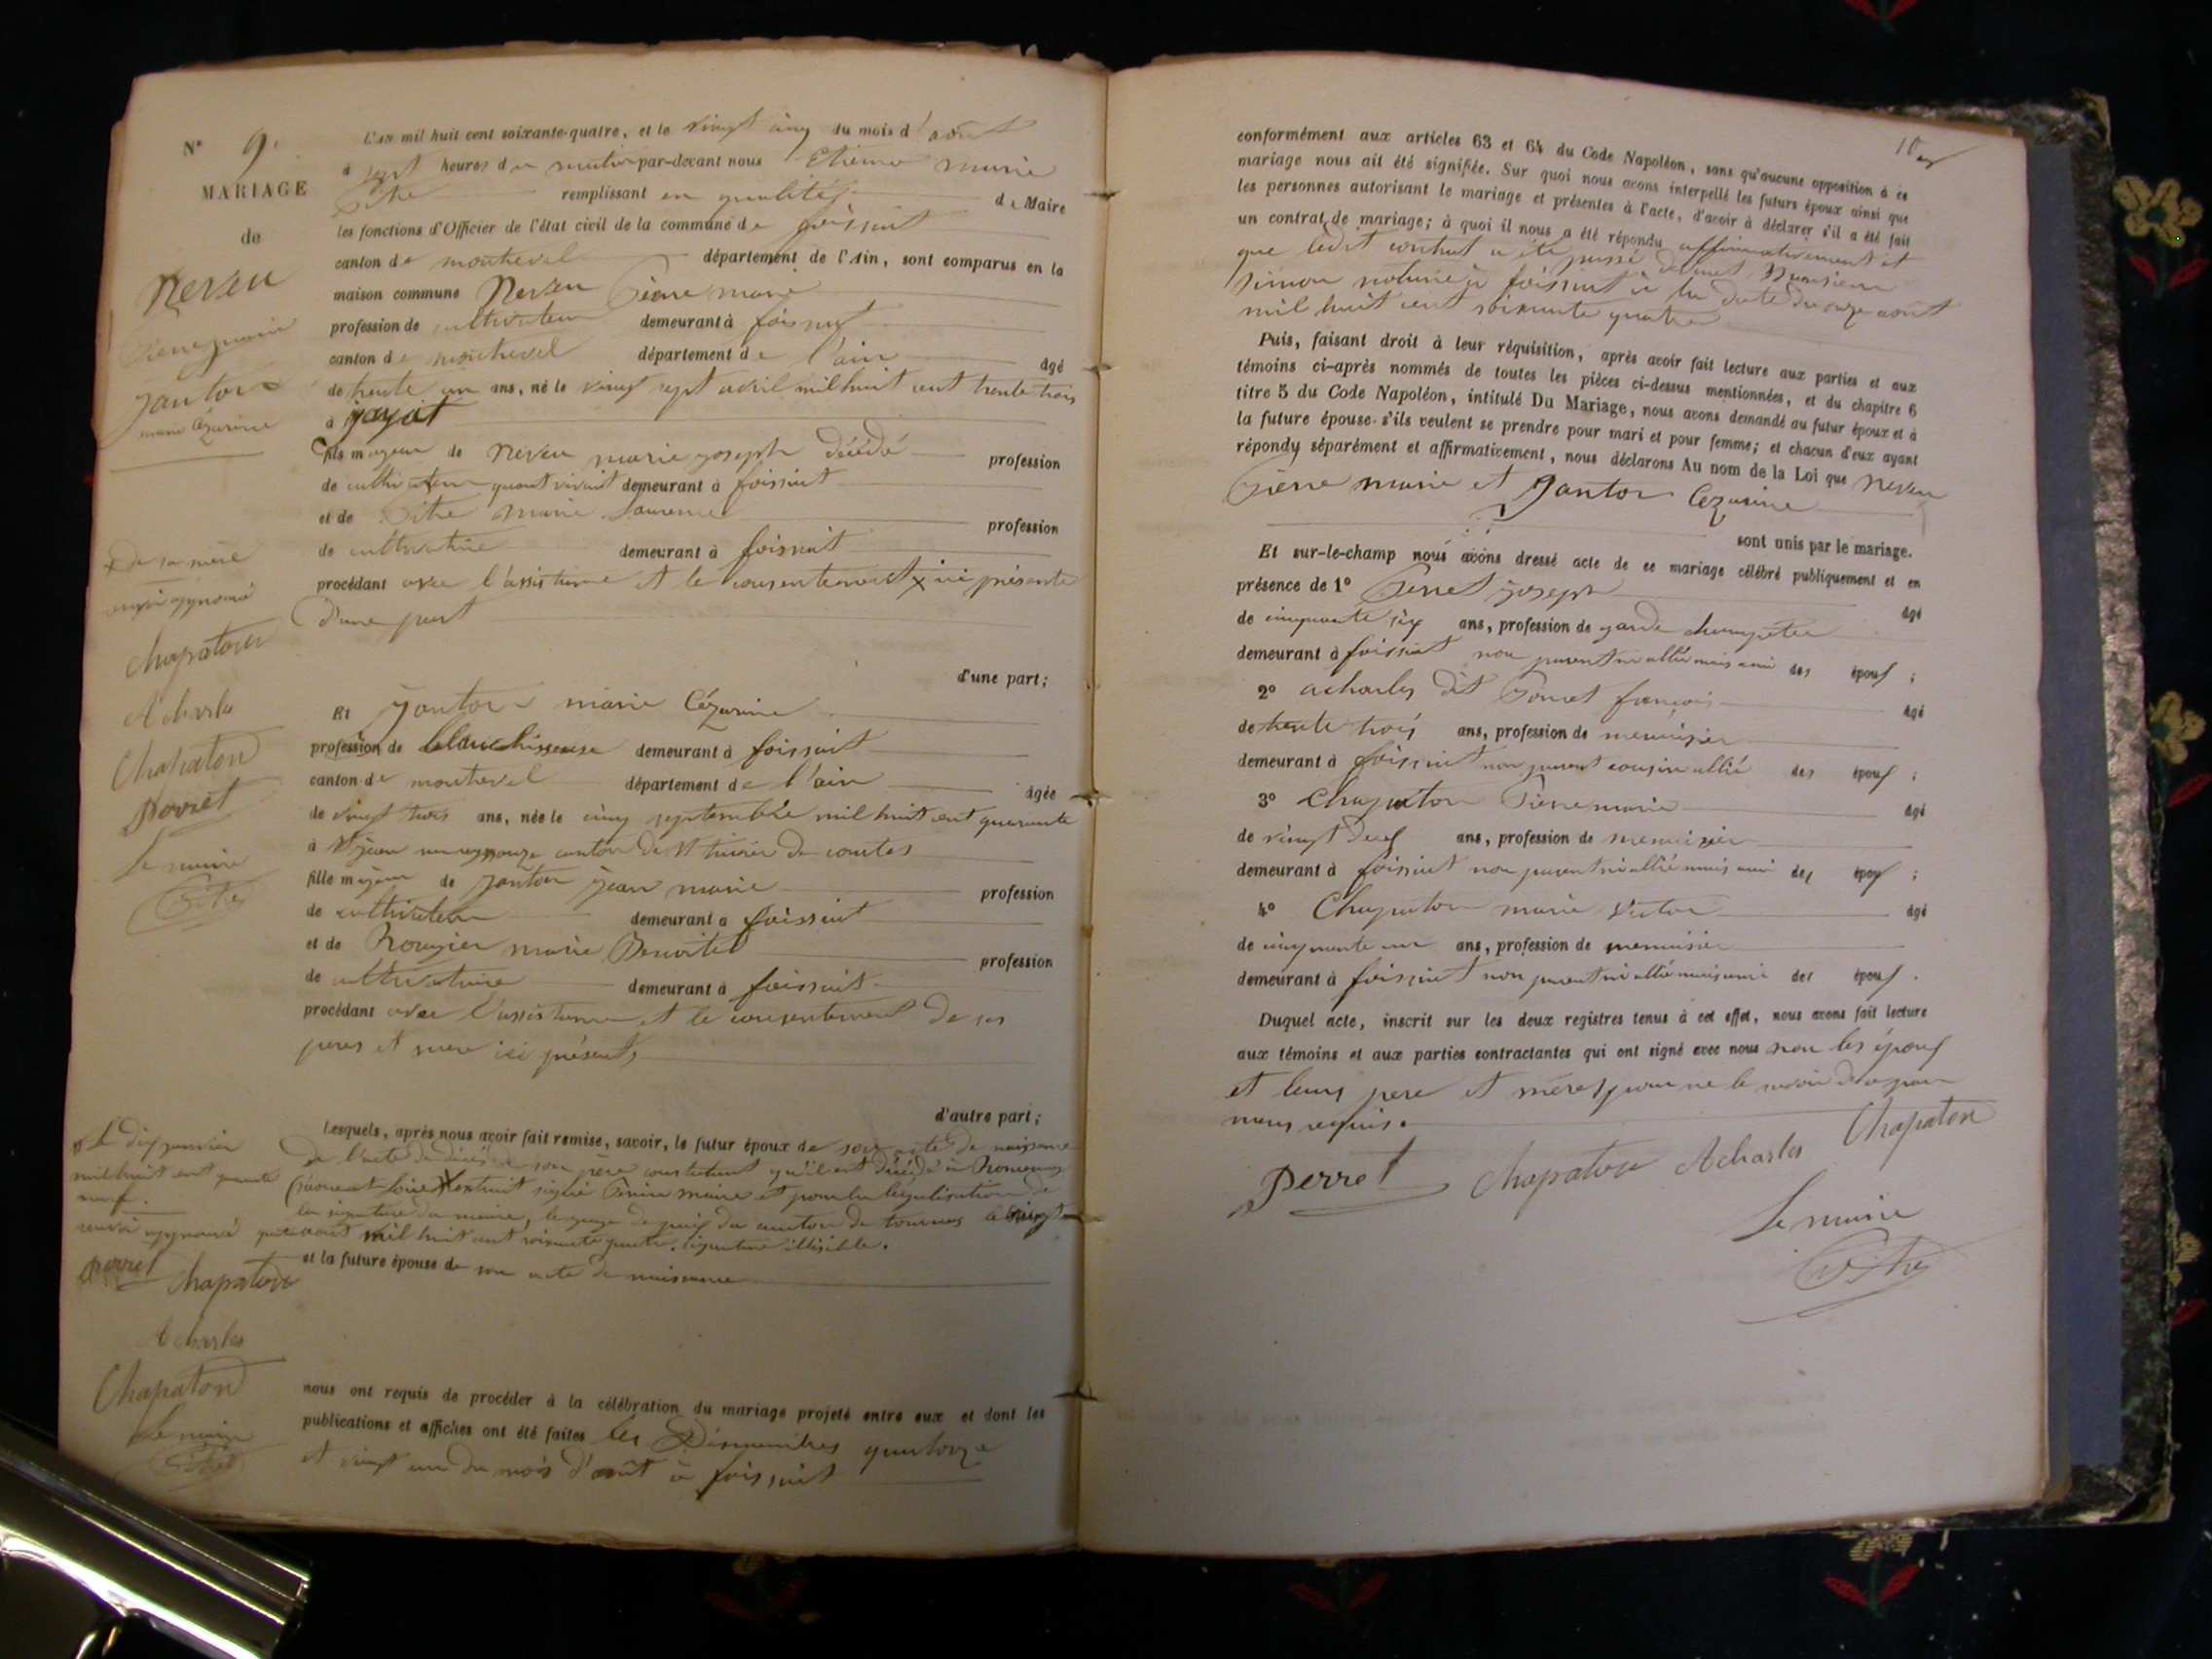 N° 9.
MARIAGE
de
Neveu
Pierre marie
Janton
marie Cézarine
L'AN mil huit cent soixante-quatre, et le vingt cinq du mois d'août
à sept heures du matin par-devant nous Etienne marie
Pithe remplissant en qualité de Maire
les fonctions d'Officier de l'état civil de la commune de foissiat
canton de montrevel département de l'Ain, sont comparus en la
maison commune Neveu Pierre marie
profession de cultivateur demeurant à foissiat
canton de montrevel département de l'ain âgé
de trente un ans, né le vingt sept avril mil huit cent trente trois
à jayat
fils majeur de Neveu marie joseph décédé profession
de cultivateur quant vivait demeurant à foissiat
et de Pithe marie Laurence profession
de cultivatrice demeurant à foissiat
procédant avec l'assistance et le consentement x ici présente
D'une part
x de sa mère
approuvé
Chapaton
Acharles
Chapaton
Perret
Le maire
Pithe
d'une part;
Et Janton marie Cézarine
profession de blanchisseuse demeurant à foissiat
canton de montrevel département de l'ain âgée
de vingt trois ans, née le cinq septembre mil huit cent quarante
à St jean sur reyssouze canton de St trivier de courtes
fille majeure de Janton jean marie profession
de cultivateur demeurant à foissiat
et de marie Benoite profession
de cultivatrice demeurant à foissiat
procédant avec l'assistance et le consentement de ses
peres et mere ici présents
d'autre part;
Lesquels, après nous avoir fait remise, savoir, le futur époux de son acte de naissance
de l'acte de décès de son père constatant qu'il est décédé à Romenay
Saone et Loire x extrait signé maire et pour la légalisation de
la signature du maire, le juge de paix du canton de tournus le vingt
quatre aout mil huit cent soixante quatre. signature illisible.
et la future épouse de son acte de naissance
x Le dix janvier
mil huit cent quarante
neuf.
approuvé
Perret Chapaton
Acharles
Chapaton
Le maire
Pithe
nous ont requis de procéder à la célébration du mariage projeté entre eux et dont les
publications et affiches ont été faites les Dimanches quatorze
et vingt un du mois d'août à foissiat
10
conformément aux articles 63 et 64 du Code Napoléon, sans qu'aucune opposition à ce
mariage nous ait été signifiée. Sur quoi nous avons interpellé les futurs époux ainsi que
les personnes autorisant le mariage et présentes à l'acte, d'avoir à déclarer s'il a été fait
un contrat de mariage; à quoi il nous a été répondu affirmativement et
que ledit contrat a été passé devant Monsieur
Simon notaire à foissiat à la date du onze août
mil huit cent soixante quatre
Puis, faisant droit à leur réquisition, après avoir fait lecture aux parties et aux
témoins ci-après nommés de toutes les pièces ci-dessus mentionnées, et du chapitre 6
titre 5 du Code Napoléon, intitulé Du Mariage, nous avons demandé au futur époux et à
la future épouse s'ils veulent se prendre pour mari et pour femme; et chacun d'eux ayant
répondu séparément et affirmativement, nous déclarons Au nom de la Loi que Neveu
Pierre marie et Janton Cezarine
sont unis par le mariage.
Et sur-le-champ nous avons dressé acte de ce mariage célébré publiquement et en
présence de 1° Perret joseph âgé
de cinquante six ans, profession de garde champêtre
demeurant à foissiat non parent ni allié mais ami des époux ;
2° acharles dit Pomet françois âgé
de trente trois ans, profession de menuisier
demeurant à foissiat non parent cousin allié des époux ;
3° Chapaton Pierre marie âgé
de vingt deux ans, profession de menuisier
demeurant à foissiat non parent ni allié mais ami des époux ;
4° Chapaton marie Victor âgé
de cinquante un ans, profession de menuisier
demeurant à foissiat non parent ni allié mais ami des époux .
Duquel acte, inscrit sur les deux registres tenus à cet effet, nous avons fait lecture
aux témoins et aux parties contractantes qui ont signé avec nous non les époux
et leurs pere et mères pour ne le savoir de ce par
nous requis.
Perret Chapaton Acharles Chapaton
Le maire
Pithe